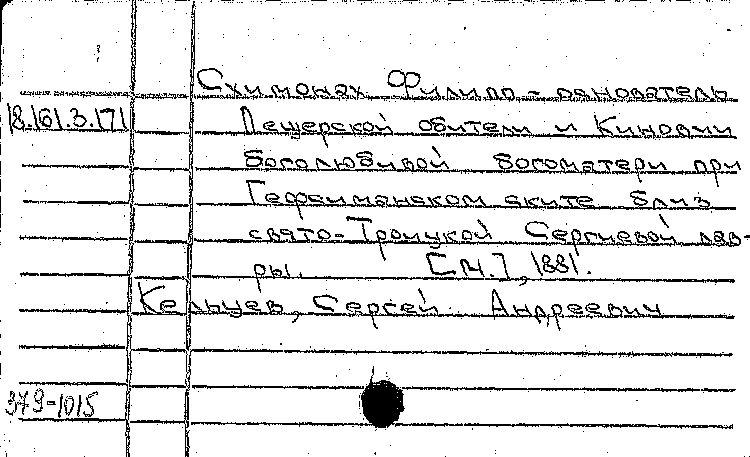 Схимонах Филипп - основатель
18.161.3.171 Пещерской обители и Киновии
боголюбивой богоматери при
Гефсиманском ските близ
свято-Троицкой Сергиевой лав-
ры. [М.], 1881.
Кельцев, Сергей Андреевич
379-1015